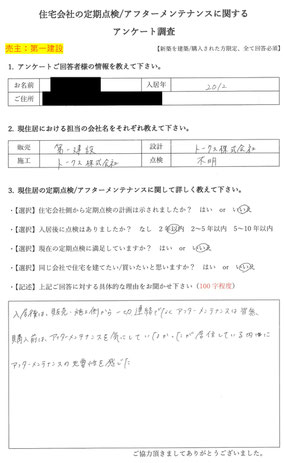 住宅会社の定期点検/アフターメンテナンスに関する
アンケート調査
売主：第一建設
【新築を建築/購入された方限定、全て回答必須】
1. アンケートご回答者様の情報を教えて下さい。
お名前 入居年 2012
ご住所
2. 現住居における担当の会社名をそれぞれ教えて下さい。
販売 第一建設 設計 トークス株式会社
施工 トークス株式会社 点検 不明
3. 現住居の定期点検/アフターメンテナンスに関して詳しく教えて下さい。
・【選択】住宅会社側から定期点検の計画は示されましたか？ はい or いいえ
・【選択】入居後に点検はありましたか？ なし 2年以内 2～5年以内 5～10年以内
・【選択】現在の定期点検に満足していますか？ はい or いいえ
・【選択】同じ会社で住宅を建てたい/買いたいと思いますか？ はい or いいえ
・【記述】上記ご回答に対する具体的な理由をお聞かせ下さい（100字程度）
入居後は、販売・施工側から一切連絡がなくアフターメンテナンスは皆無。
購入前は、アフターメンテナンスを気にしていなかったが居住している内に
アフターメンテナンスの必要性を感じた
ご協力頂きましてありがとうございました。